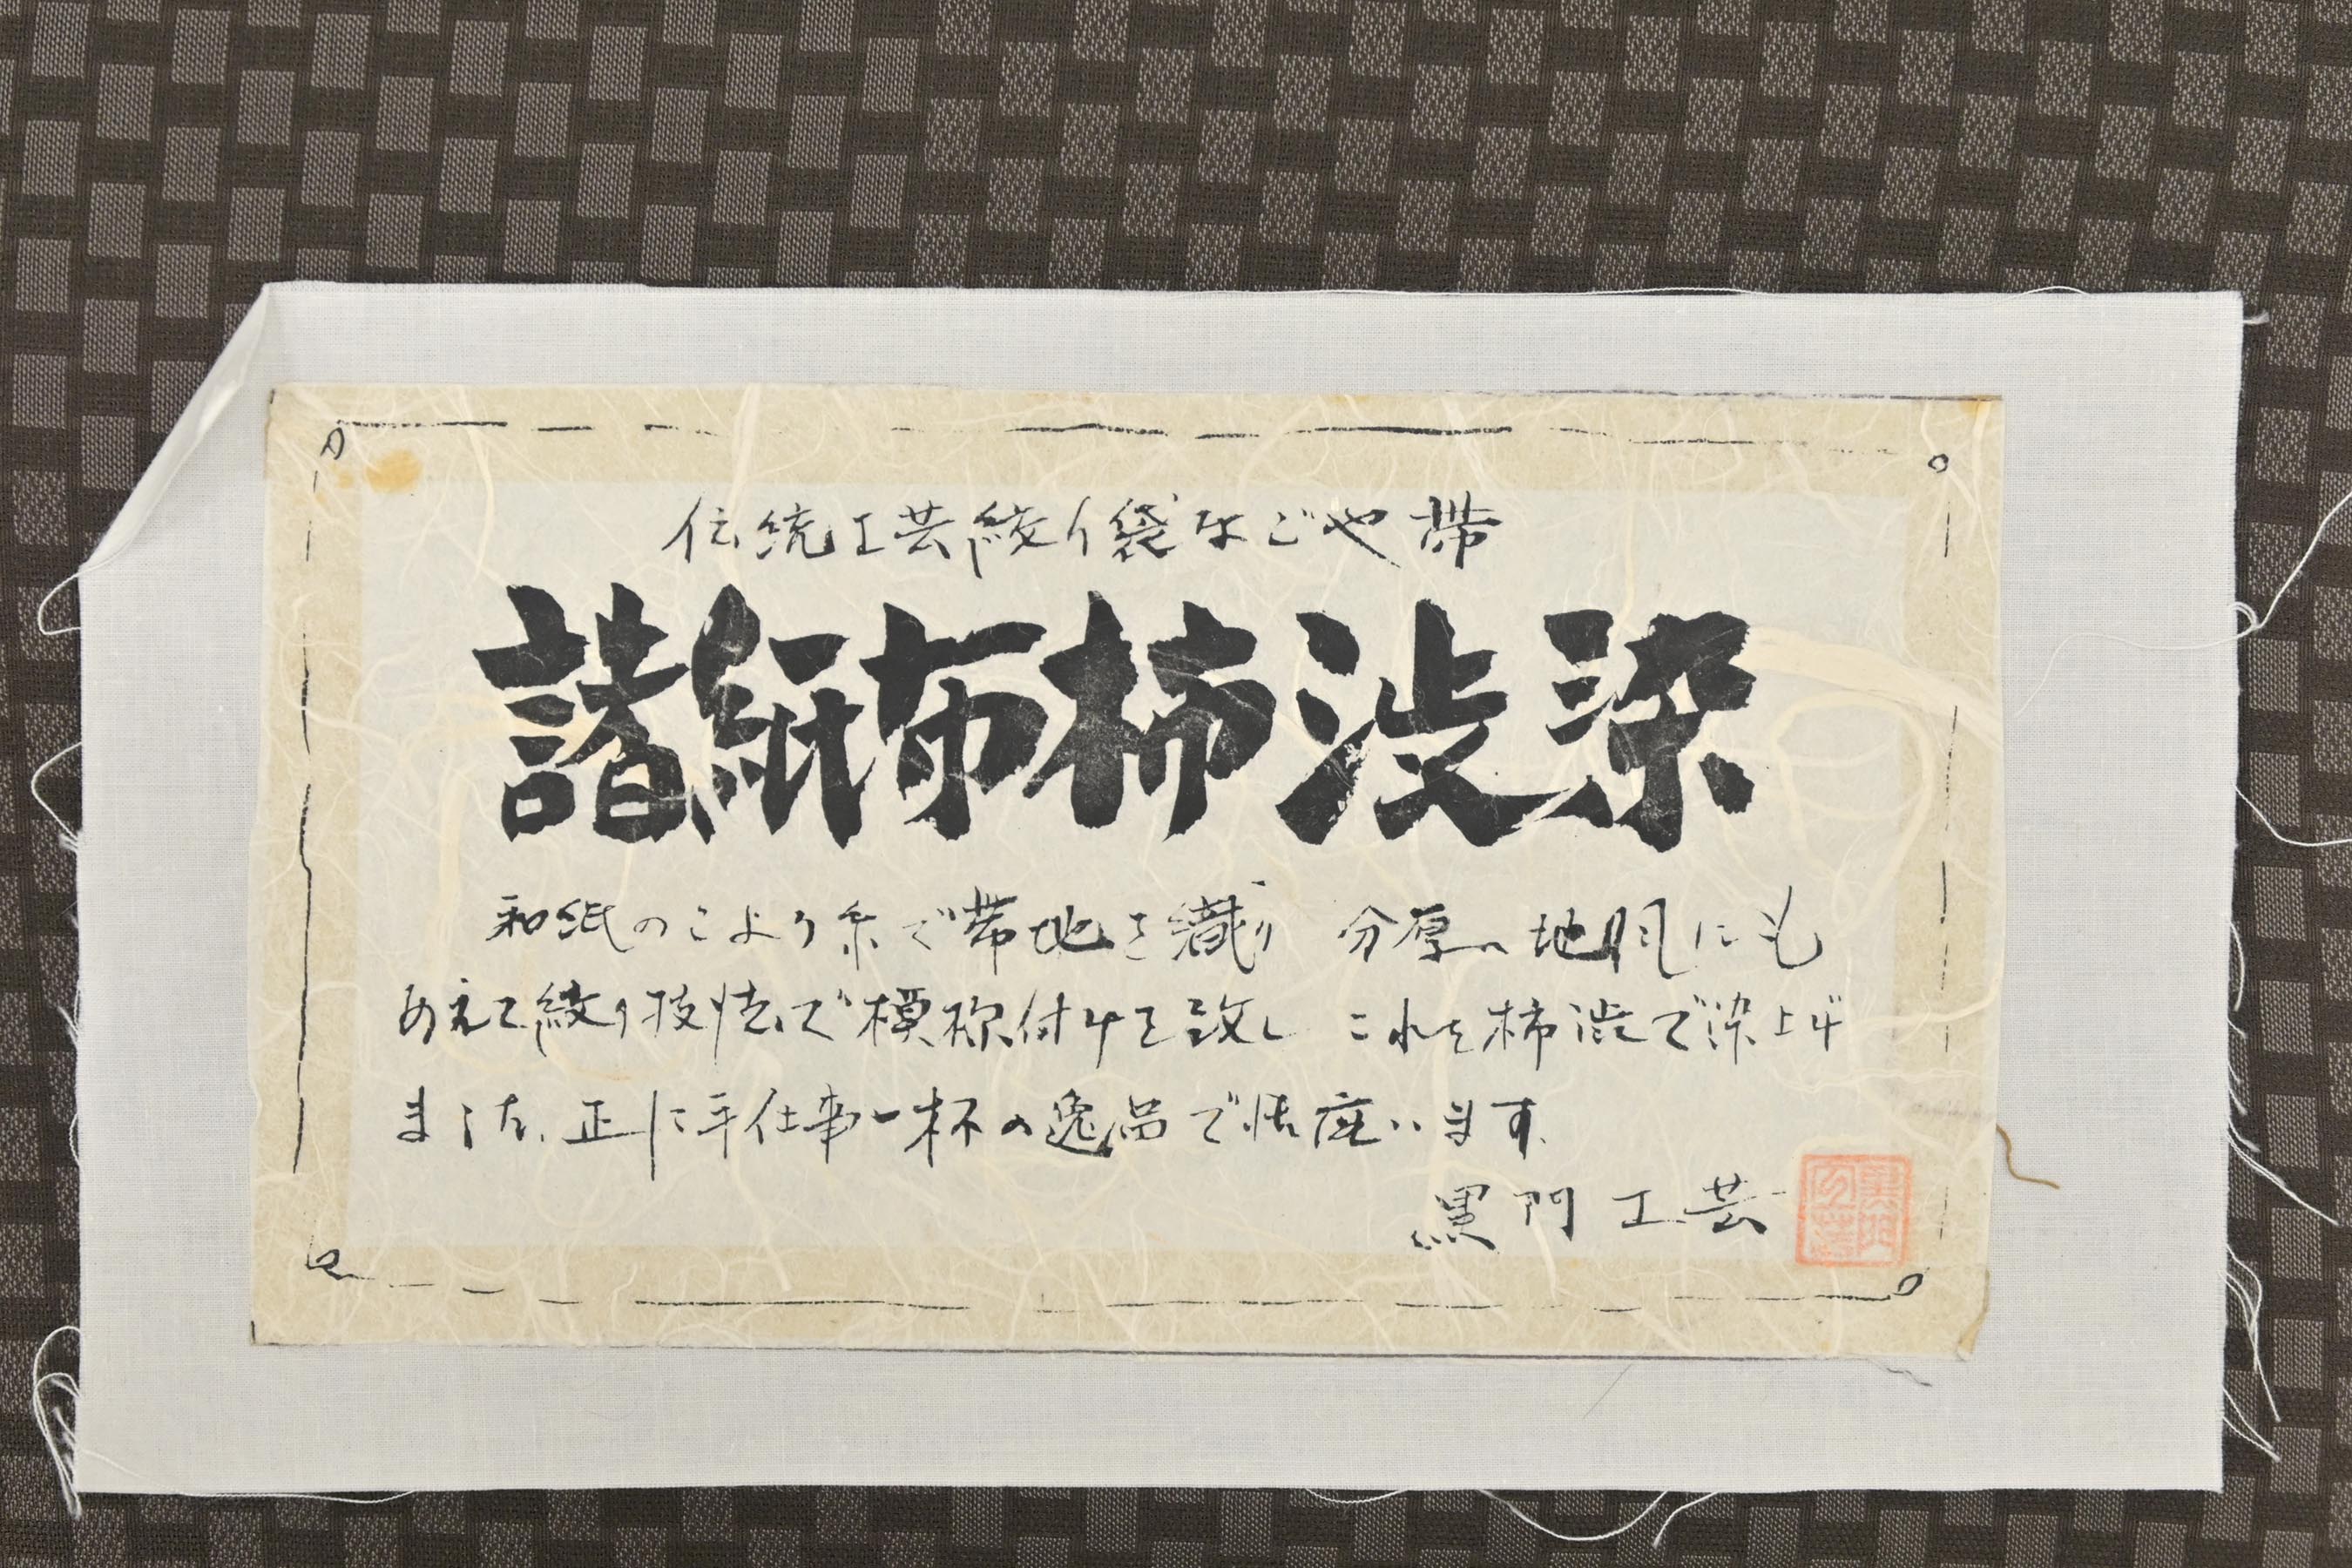 伝統工芸絞り袋なごや帯
諸紙布柿渋染
和紙のこより糸で帯地を織り 分厚い地風にも
あえて絞り技法で模様付けを致し これを柿渋で染上げ
ました、正に手仕事一杯の逸品で御座います。
黒門工芸
黒門工芸